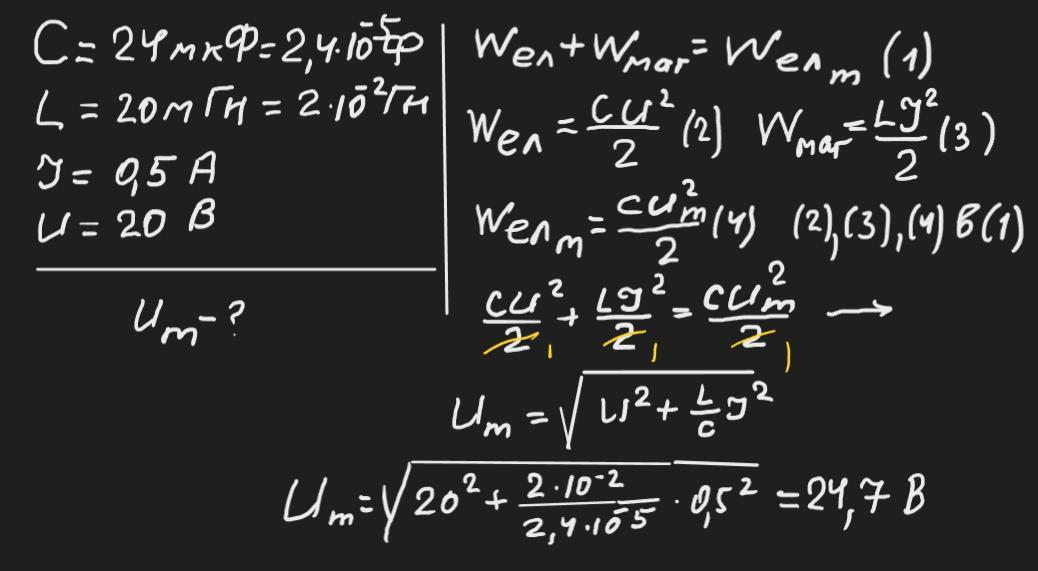 C = 24 мкФ = 2,4·10⁻⁵ Ф
L = 20 мГн = 2·10⁻² Гн
J = 0,5 А
U = 20 В
Uₘ - ?
Wэл + Wмаг = Wэлₘ (1)
Wэл = CU²/2 (2) Wмаг = LJ²/2 (3)
Wэлₘ = CUₘ²/2 (4) (2),(3),(4) в (1)
CU²/2 + LJ²/2 = CUₘ²/2 →
Uₘ = √(U² + L/C J²)
Uₘ = √(20² + 2·10⁻²/2,4·10⁻⁵ · 0,5²) = 24,7 В